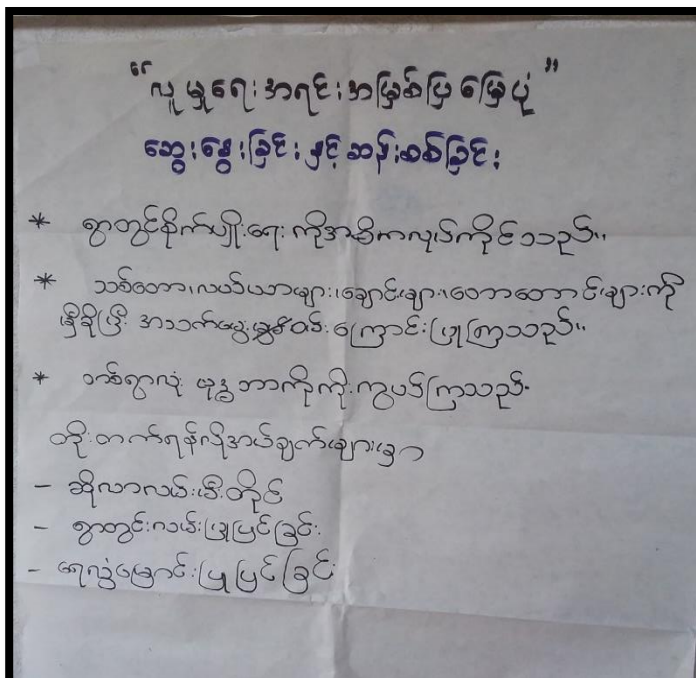 "လူမှုရေးအရင်းအမြစ်ပြမြေပုံ"
ဆွေးနွေးခြင်းနှင့်ဆန်းစစ်ခြင်း
* ရွာတွင်စိုက်ပျိုးရေးကိုအဓိကလုပ်ကိုင်သည်။
* သစ်တော၊လယ်ယာများ၊ချောင်းများ၊တောတောင်များကို
မှီခိုပြီး အသက်မွေးဝမ်းကြောင်းပြုကြသည်။
* တစ်ရွာလုံး ဗုဒ္ဓဘာသာကိုကိုးကွယ်ကြသည်။
တိုးတက်ရန်လိုအပ်ချက်များမှာ
- ဆိုလာလမ်းမီးတိုင်
- ရွာတွင်းလမ်းပြုပြင်ခြင်း
- ရေလွှဲမြောင်းပြုပြင်ခြင်း